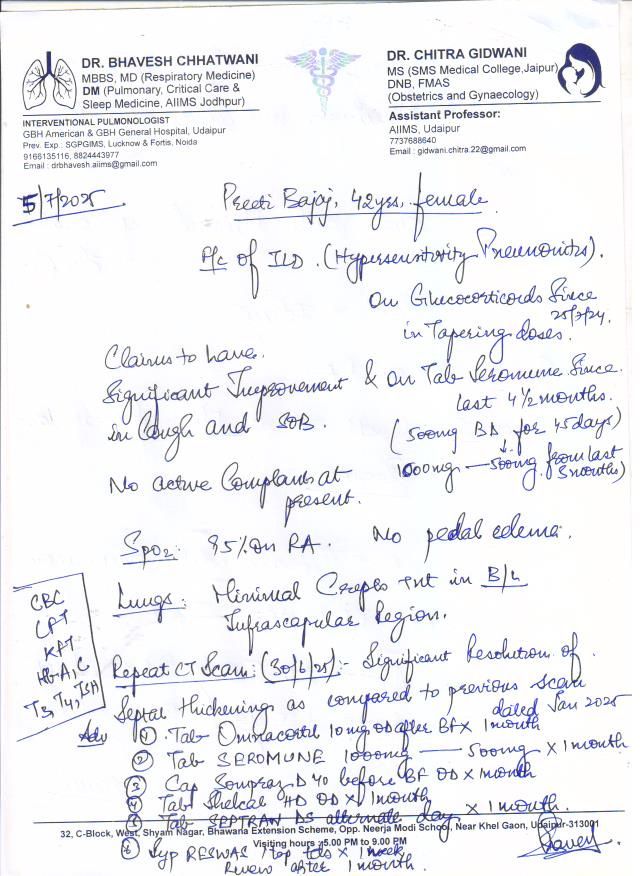 DR. BHAVESH CHHATWANI
MBBS, MD (Respiratory Medicine)
DM (Pulmonary, Critical Care &
Sleep Medicine, AIIMS Jodhpur)
INTERVENTIONAL PULMONOLOGIST
GBH American & GBH General Hospital, Udaipur
Prev. Exp.: SGPGIMS, Lucknow & Fortis, Noida
9166135116, 8824443977
Email : drbhavesh.aiims@gmail.com
DR. CHITRA GIDWANI
MS (SMS Medical College,Jaipur)
DNB, FMAS
(Obstetrics and Gynaecology)
Assistant Professor:
AIIMS, Udaipur
7737688640
Email : gidwani.chitra.22@gmail.com
5/7/2025
Preeti Bajaj, 42yrs, female
P/c of ILD. (Hypersensitivity Pneumonitis).
On Glucocorticoids Since
25/7/24,
in Tapering doses.
Claims to have
Significant Improvement
in Cough and SOB.
& On Tab Seromune Since
last 4 1/2 months.
(500mg BD for 45days)
↓
1000mg — 500mg from last
3 months)
No active Complaints at
present.
SpO2: 95% on RA. No pedal edema.
Lungs: Minimal Creps +nt in B/L
Infrascapular Region.
CBC
LFT
KFT
HbA1C
T3, T4, TSH
Repeat CT Scan: (30/6/25):- Significant Resolution of
Septal thickenings as compared to previous Scan
dated Jan 2025
Adv
① Tab Omnacortil 10mg OD after BF x 1month
② Tab SEROMUNE 1000mg — 500mg x 1month
③ Cap Sompraz D 40 before BF OD x 1month
④ Tab Shelcal HD OD x 1month
⑤ Tab SEPTRAN DS alternate day x 1month.
32, C-Block, West, Shyam Nagar, Bhawana Extension Scheme, Opp. Neerja Modi School, Near Khel Gaon, Udaipur-313001
Visiting hours : 5.00 PM to 9.00 PM
⑥ Syp RESWAS 1tsp tds x 1week
Review after 1month.